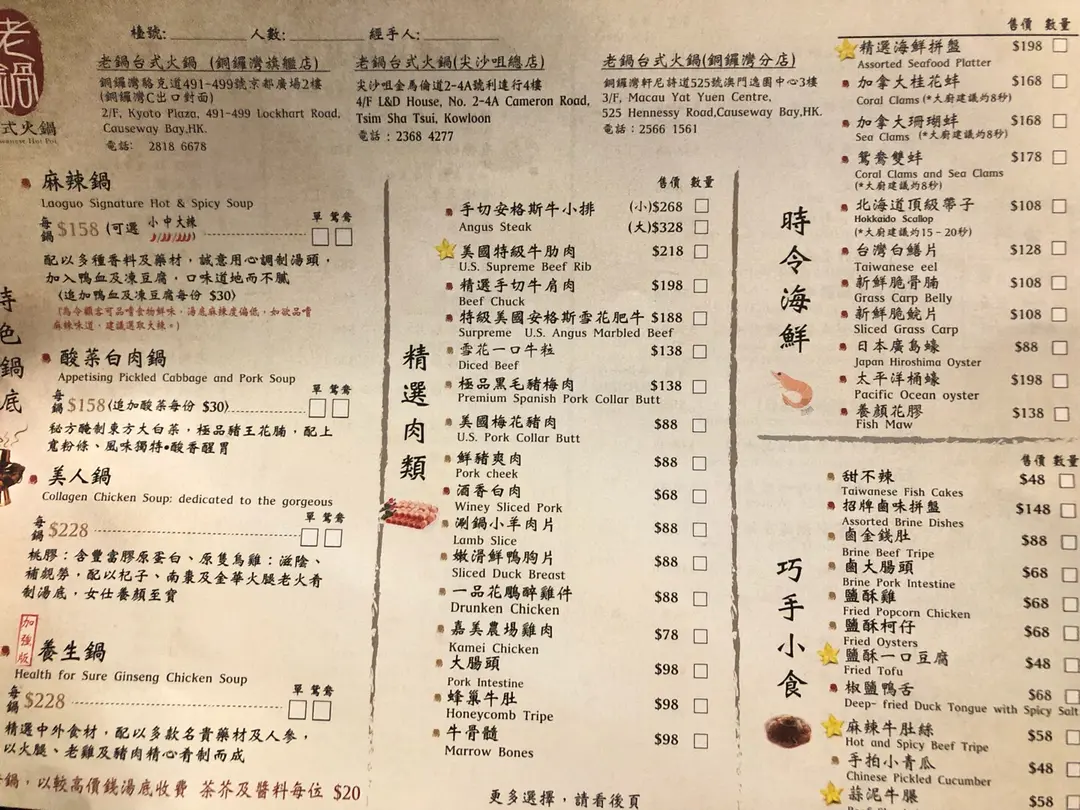 老鍋
式火鍋
檯號:
人數:
經手人:
老鍋台式火鍋 (銅鑼灣旗艦店)
銅鑼灣駱克道491-499號京都廣場2樓
(銅鑼灣C出口對面)
2/F, Kyoto Plaza, 491-499 Lockhart Road,
Causeway Bay,HK.
電話: 2818 6678
老鍋台式火鍋(尖沙咀總店)
尖沙咀金馬倫道2-4A號利達行4樓
4/F L&D House, No. 2-4A Cameron Road,
Tsim Sha Tsui, Kowloon
電話 : 2368 4277
老鍋台式火鍋(銅鑼灣分店)
銅鑼灣軒尼詩道525號澳門逸園中心3樓
3/F, Macau Yat Yuen Centre,
525 Hennessy Road,Causeway Bay,HK.
電話 : 2566 1561
色鍋底
麻辣鍋
Laoguo Signature Hot & Spicy Soup
每鍋 $158 (可選 小中大辣 單 鴛鴦
配以多種香料及藥材，誠意用心調制湯頭，
加入鴨血及凍豆腐，口味道地而不膩
(追加鴨血及凍豆腐每份 $30)
(為令顧客可品嚐食物鮮味，湯底麻辣度偏低，如欲品嚐
麻辣味道，建議選取大辣。)
酸菜白肉鍋
Appetising Pickled Cabbage and Pork Soup
每鍋 $158 (追加酸菜每份 $30) 單 鴛鴦
秘方醃制東方大白菜，極品豬王花腩，配上
寬粉條、風味獨特•酸香醒胃
美人鍋
Collagen Chicken Soup: dedicated to the gorgeous
每鍋 $228 單 鴛鴦
桃膠：含豐富膠原蛋白、原隻烏雞：滋陰、
補虧勞，配以杞子、南棗及金華火腿老火肴
制湯底，女仕養顏至寶
加強版
養生鍋
Health for Sure Ginseng Chicken Soup
每鍋 $228 單 鴛鴦
精選中外食材，配以多款名貴藥材及人參，
以火腿、老雞及豬肉精心肴制而成
鍋，以較高價錢湯底收費 茶芥及醬料每位 $20
精選肉類
售價 數量
手切安格斯牛小排 (小)$268
Angus Steak (大)$328
美國特級牛肋肉 $218
U.S. Supreme Beef Rib
精選手切牛肩肉 $198
Beef Chuck
特級美國安格斯雪花肥牛 $188
Surpreme U.S. Angus Marbled Beef
雪花一口牛粒 $138
Diced Beef
極品黑毛豬梅肉 $138
Premium Spanish Pork Collar Butt
美國梅花豬肉 $88
U.S. Pork Collar Butt
鮮豬爽肉 $88
Pork cheek
酒香白肉 $68
Winey Sliced Pork
涮鍋小羊肉片 $88
Lamb Slice
嫩滑鮮鴨胸片 $88
Sliced Duck Breast
一品花鵰醉雞件 $88
Drunken Chicken
嘉美農場雞肉 $78
Kamei Chicken
大腸頭 $98
Pork Intestine
蜂巢牛肚 $98
Honeycomb Tripe
牛骨髓 $98
Marrow Bones
更多選擇，請看後頁
時令海鮮
售價 數量
精選海鮮拼盤 $198
Assorted Seafood Platter
加拿大桂花蚌 $168
Coral Clams (*大廚建議灼8秒)
加拿大珊瑚蚌 $168
Sea Clams (*大廚建議灼8秒)
鴛鴦雙蚌 $178
Coral Clams and Sea Clams
(*大廚建議灼8秒)
北海道頂級帶子 $108
Hokkaido Scallop
(*大廚建議灼15 - 20秒)
台灣白鱔片 $128
Taiwanese eel
新鮮脆骨腩 $108
Grass Carp Belly
新鮮脆鯇片 $108
Sliced Grass Carp
日本廣島蠔 $88
Japan Hiroshima Oyster
太平洋桶蠔 $198
Pacific Ocean oyster
養顏花膠 $138
Fish Maw
巧手小食
售價 數量
甜不辣 $48
Taiwanese Fish Cakes
招牌鹵味拼盤 $148
Assorted Brine Dishes
鹵金錢肚 $88
Brine Beef Tripe
鹵大腸頭 $68
Brine Pork Intestine
鹽酥雞 $68
Fried Popcorn Chicken
鹽酥柯仔 $68
Fried Oysters
鹽酥一口豆腐 $48
Fried Tofu
椒鹽鴨舌 $68
Deep- fried Duck Tongue with Spicy Salt
麻辣牛肚絲 $58
Hot and Spicy Beef Tripe
手拍小青瓜 $48
Chinese Pickled Cucumber
蒜泥牛腱 $58